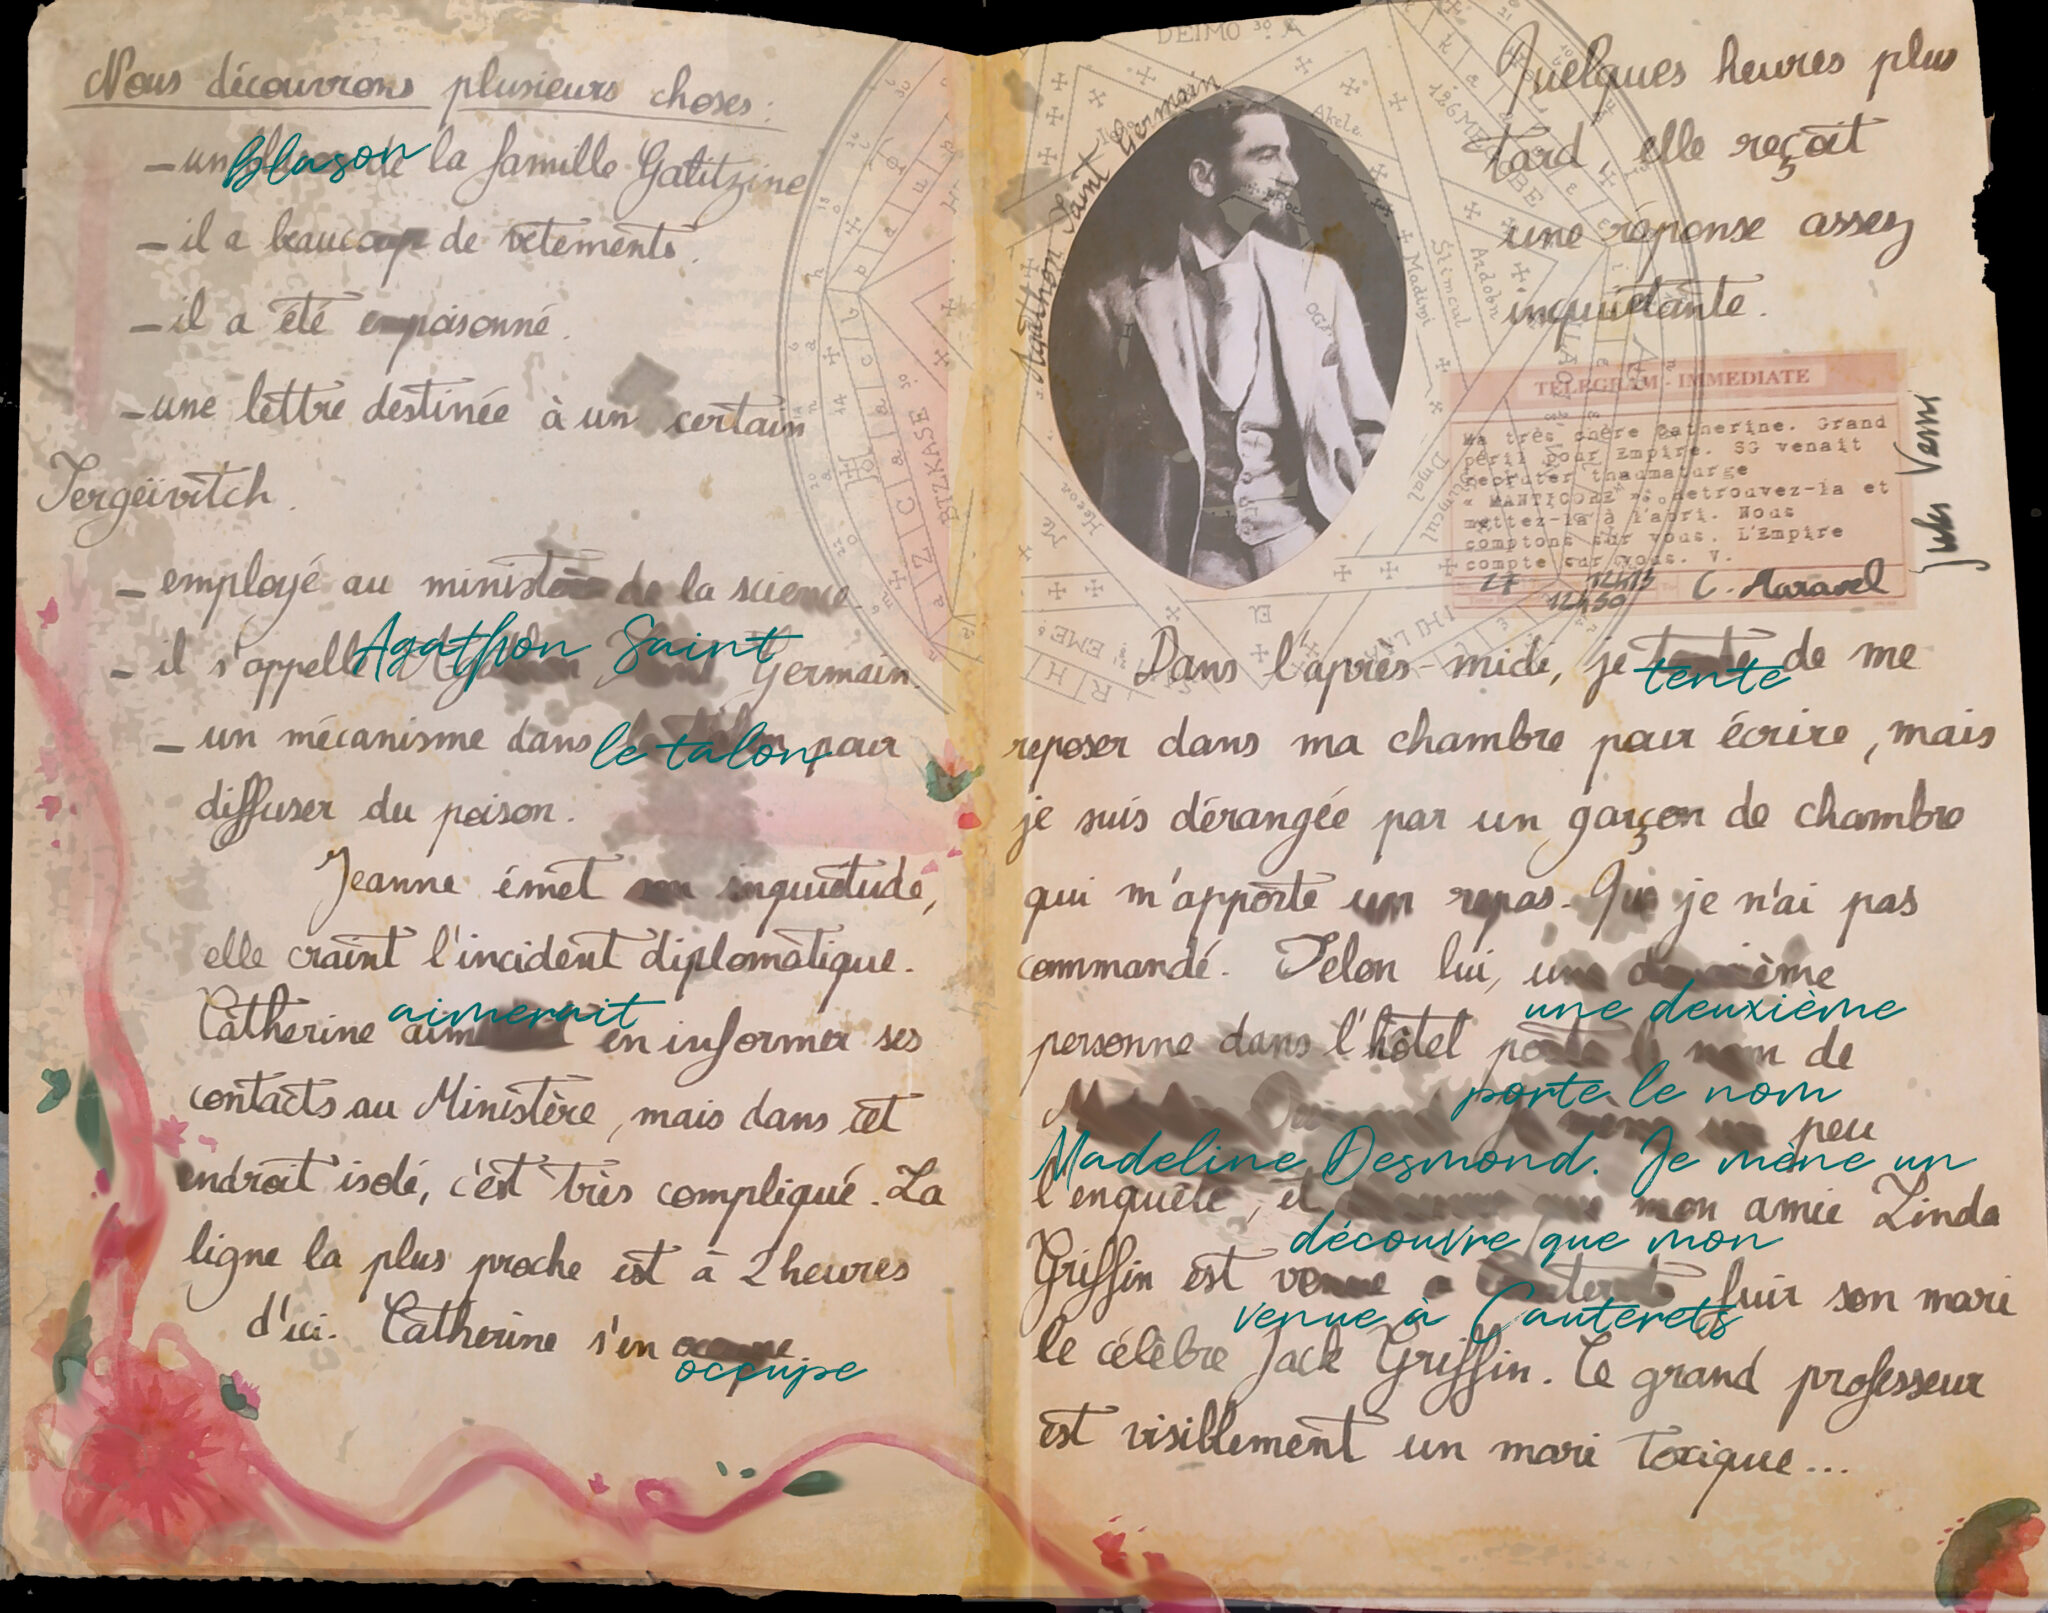 Nous découvrons plusieurs choses :
- un blason de la famille Galitzine
- il a beaucoup de vêtements.
- il a été empoisonné.
- une lettre destinée à un certain
Sergeïvitch.
- employé au ministère de la science.
- il s'appelle Agathon Saint Germain.
- un mécanisme dans le talon pour
diffuser du poison.
Jeanne émet son inquiétude,
elle craint l'incident diplomatique.
Catherine aimerait en informer ses
contacts au Ministère, mais dans cet
endroit isolé, c'est très compliqué. La
ligne la plus proche est à 2 heures
d'ici. Catherine s'en occupe.
Agathon Saint Germain
Quelques heures plus
tard, elle reçoit
une réponse assez
inquiétante.
TELEGRAM - IMMEDIATE
Ma très chère Catherine. Grand
péril pour Empire. SG venait
recruter thaumaturge
« MANTICORE ». Retrouvez-la et
mettez-la à l'abri. Nous
comptons sur vous. L'Empire
compte sur vous. V.
27 12h45 C. Maravel
12h50
Jules Verne
Dans l'après-midi, je tente de me
reposer dans ma chambre pour écrire, mais
je suis dérangée par un garçon de chambre
qui m'apporte un repas. Que je n'ai pas
commandé. Selon lui, une deuxième
personne dans l'hôtel porte le nom de
Madeline Desmond. Je mène un peu
l'enquête, et découvre que mon amie Linda
Griffin est venue à Cauterets fuir son mari
le célèbre Jack Griffin. Ce grand professeur
est visiblement un mari toxique...
DEIMO
BIZKASE
Akele
Madimi
Stimcul
Ardobn
Dmal
Heeoa
Me
EME
El